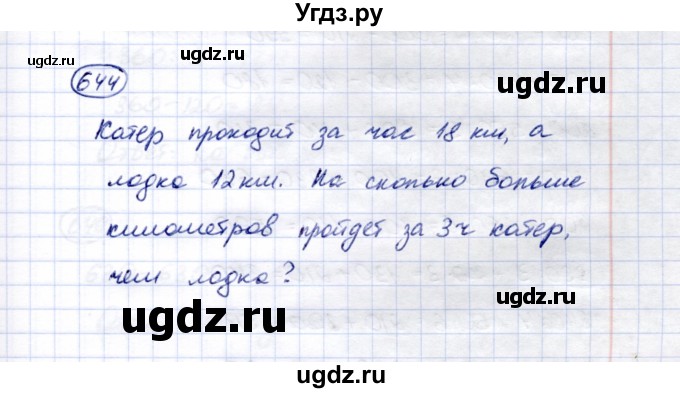 Угдз.ру
ugdz.ru ugdz.ru
644 ugdz.ru
Катер проходит за час 18 км, а
лодка 12 км. На сколько больше
километров пройдет за 3 ч катер,
чем лодка? ugdz.ru
ugdz.ru
ugdz.ru